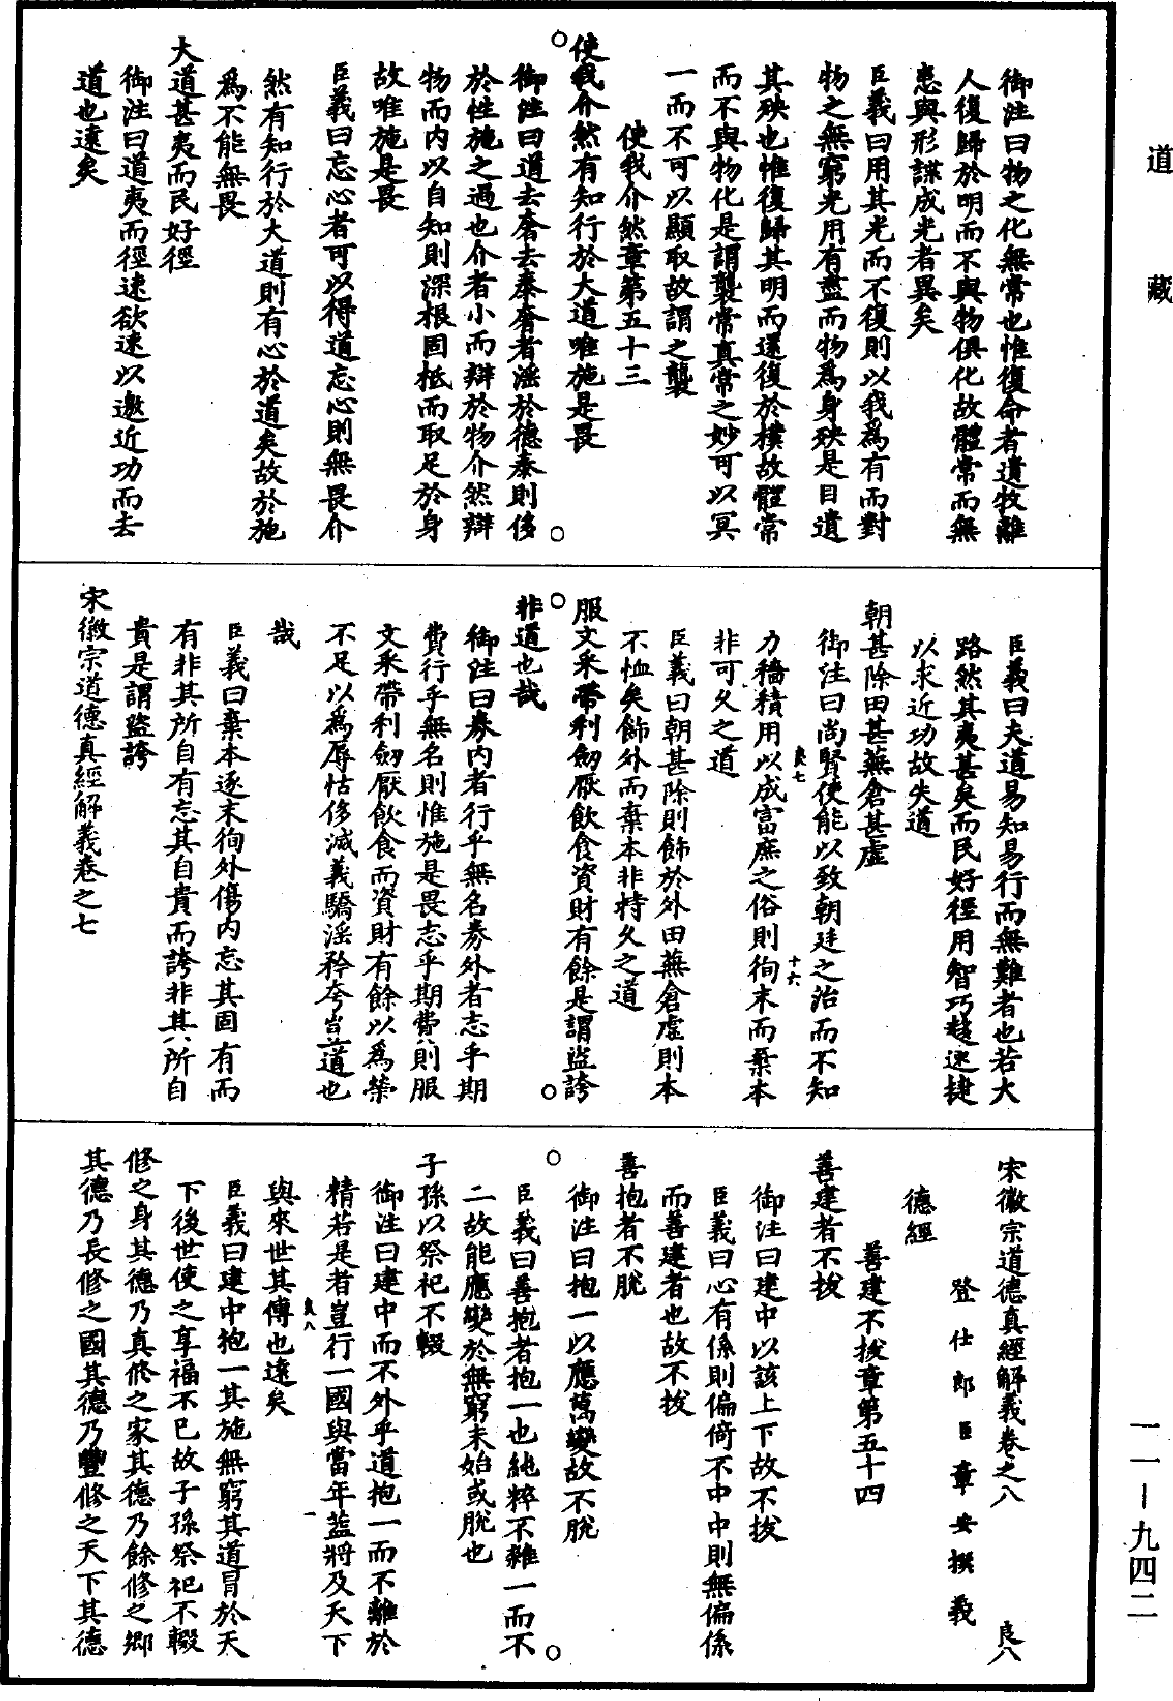 道藏
御注曰物之化無常也惟復命者遺物離
人復歸於明而不與物俱化故體常而無
患與形諜成光者異矣
臣義曰用其光而不復則以我為有而對
物之無窮光用有盡而物為身殃是目遺
其殃也惟復歸其明而還復於樸故體常
而不與物化是謂襲常真常之妙可以冥
一而不可以顯取故謂之襲
使我介然章第五十三
使我介然有知行於大道唯施是畏
御注曰道去奢去泰奢者淫於德泰則侈
於性施之過也介者小而辯於物介然辯
物而內以自知則深根固柢而取足於身
故唯施是畏
臣義曰忘心者可以得道忘心則無畏介
然有知行於大道則有心於道矣故於施
為不能無畏
大道甚夷而民好徑
御注曰道夷而徑速欲速以邀近功而去
道也遠矣
臣義曰夫道易知易行而無難者也若大
路然其夷甚矣而民好徑用智巧趍速捷
以求近功故失道
朝甚除田甚蕪倉甚虛
御注曰尚賢使能以致朝廷之治而不知
力穡積用以成富庶之俗則徇末而棄本
非可久之道
良七
十六
臣義曰朝甚除則飾於外田蕪倉虛則本
不恤矣飾外而棄本非特久之道
服文采帶利劒厭飲食資財有餘是謂盜誇
非道也哉
御注曰券內者行乎無名券外者志乎期
費行乎無名則惟施是畏志乎期費則服
文采帶利劒厭飲食而資財有餘以為榮
不足以為辱怙侈滅義驕淫矜夸豈道也
哉
臣義曰棄本逐末徇外傷內忘其固有而
有非其所自有忘其自貴而誇非其所自
貴是謂盜誇
宋徽宗道德真經解義卷之七
宋徽宗道德真經解義卷之八
良八
登仕郎臣章安撰義
德經
善建不拔章第五十四
善建者不拔
御注曰建中以該上下故不拔
臣義曰心有係則偏倚不中中則無偏係
而善建者也故不拔
善抱者不脫
御注曰抱一以應萬變故不脫
臣義曰善抱者抱一也純粹不雜一而不
二故能應變於無窮未始或脫也
子孫以祭祀不輟
御注曰建中而不外乎道抱一而不離於
精若是者豈行一國與當年蓋將及天下
與來世其傳也遠矣
良八
一
臣義曰建中抱一其施無窮其道冒於天
下後世使之享福不已故子孫祭祀不輟
修之身其德乃真修之家其德乃餘修之鄉
其德乃長修之國其德乃豐修之天下其德
一一—九四二